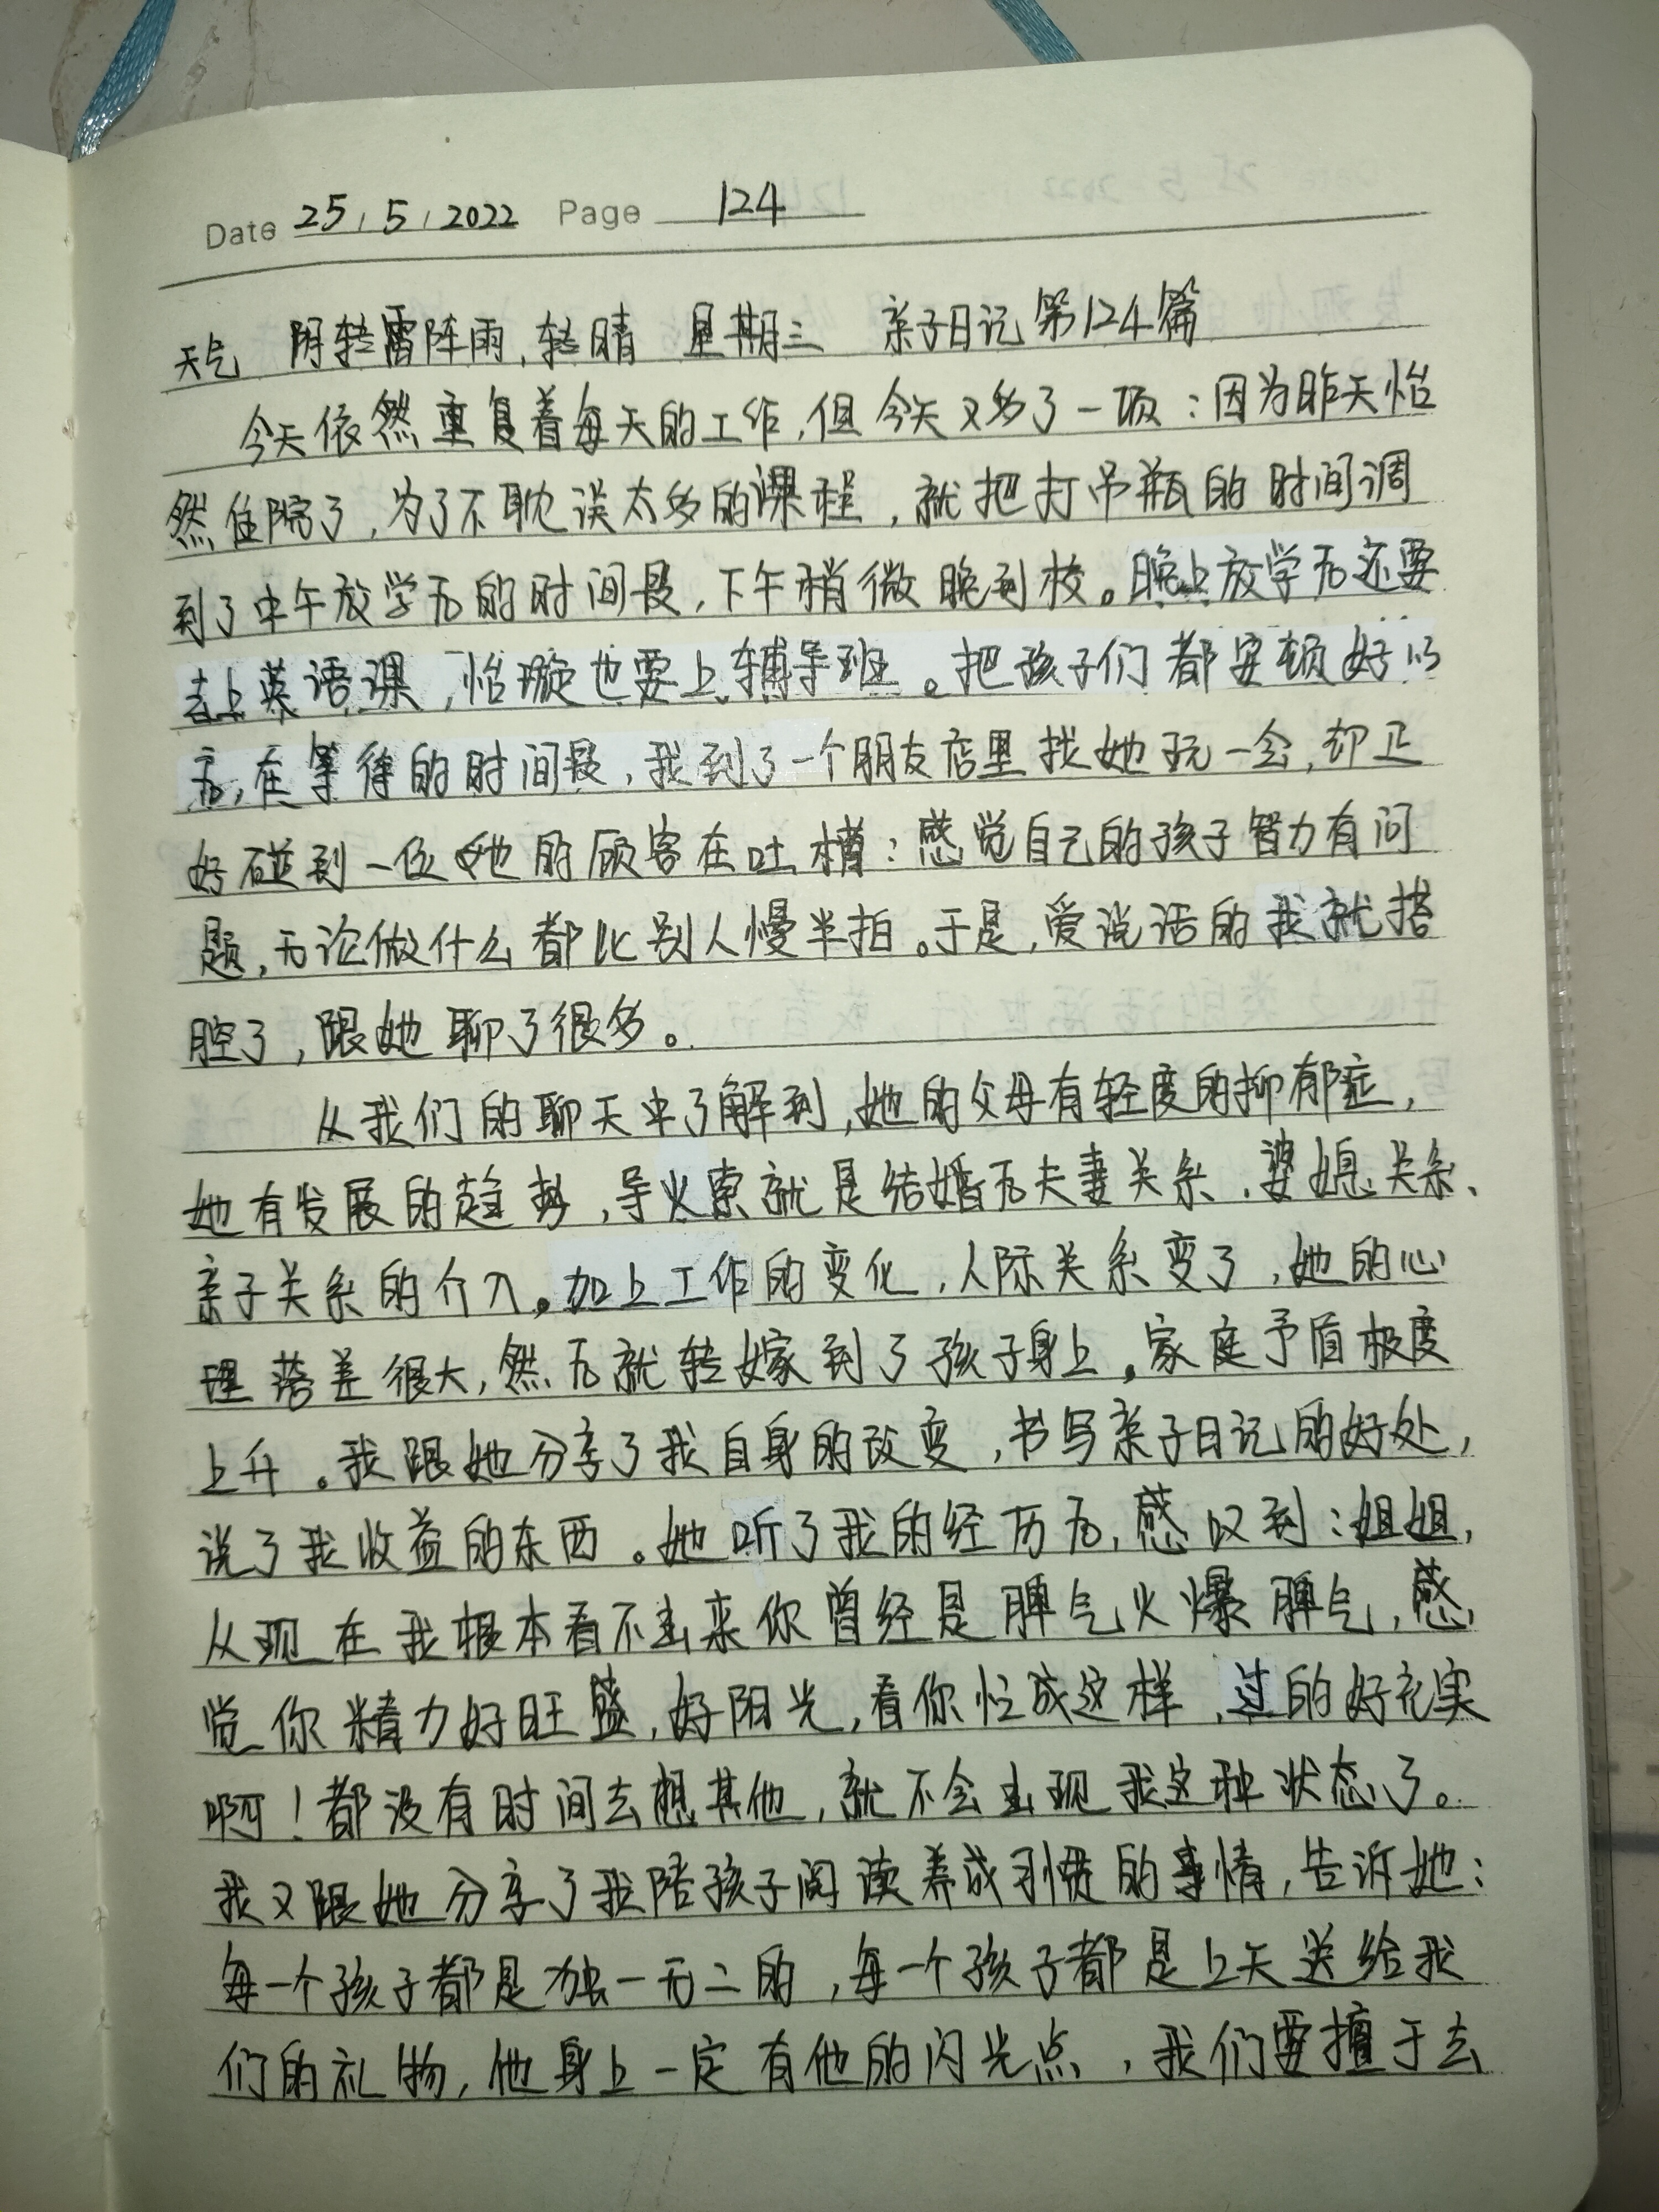 Date 25 / 5 / 2022 Page 124
天气 阴转雷阵雨,转晴 星期三 亲子日记第124篇
今天依然重复着每天的工作,但今天又多了一项:因为昨天怡
然住院了,为了不耽误太多的课程,就把打吊瓶的时间调
到了中午放学后的时间段,下午稍微晚到校。晚上放学后还要
去上英语课,怡璇也要上辅导班。把孩子们都安顿好以
后,在等待的时间段,我到了一个朋友店里找她玩一会,却正
好碰到一位她的顾客在吐槽:感觉自己的孩子智力有问
题,无论做什么都比别人慢半拍。于是,爱说话的我就搭
腔了,跟她聊了很多。
从我们的聊天中了解到,她的父母有轻度的抑郁症,
她有发展的趋势,导火索就是结婚后夫妻关系、婆媳关系、
亲子关系的介入。加上工作的变化,人际关系变了,她的心
理落差很大,然后就转嫁到了孩子身上。家庭矛盾极度
上升。我跟她分享了我自身的改变,书写亲子日记的好处,
说了我收益的东西。她听了我的经历后,感叹到:姐姐,
从现在我根本看不出来你曾经是脾气火爆脾气,感
觉你精力好旺盛,好阳光,看你忙成这样,过的好充实
啊!都没有时间去想其他,就不会出现我这种状态了。
我又跟她分享了我陪孩子阅读养成习惯的事情,告诉她:
每一个孩子都是独一无二的,每一个孩子都是上天送给我
们的礼物,他身上一定有他的闪光点,我们要擅于去